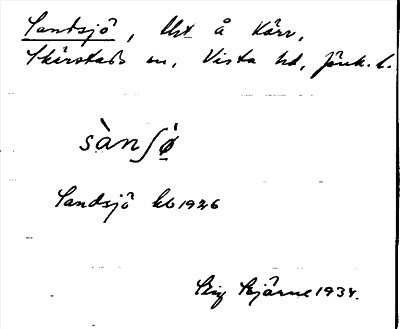 Sandsjö, Urt å Kärr,
Skärstads sn, Vista hd, Jönk. l.
sànʃø̀
Sandsjö kb 1926
Stig Bjärne 1934.